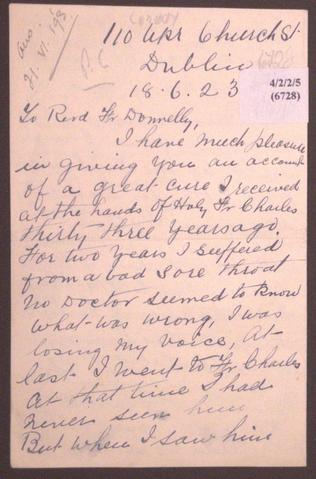 Conroy
110 Upr Church St.
Dublin
18.6.23
4/2/2/5
(6728)
To Revd Fr Donnelly,
I have much pleasure
in giving you an account
of a great cure I received
at the hands of Holy Fr Charles
thirty three years ago.
For two years I suffered
from a bad sore throat
No Doctor seemed to know
what was wrong, I was
losing my voice, At
last I went to Fr Charles
At that time I had
never seen him
But when I saw him